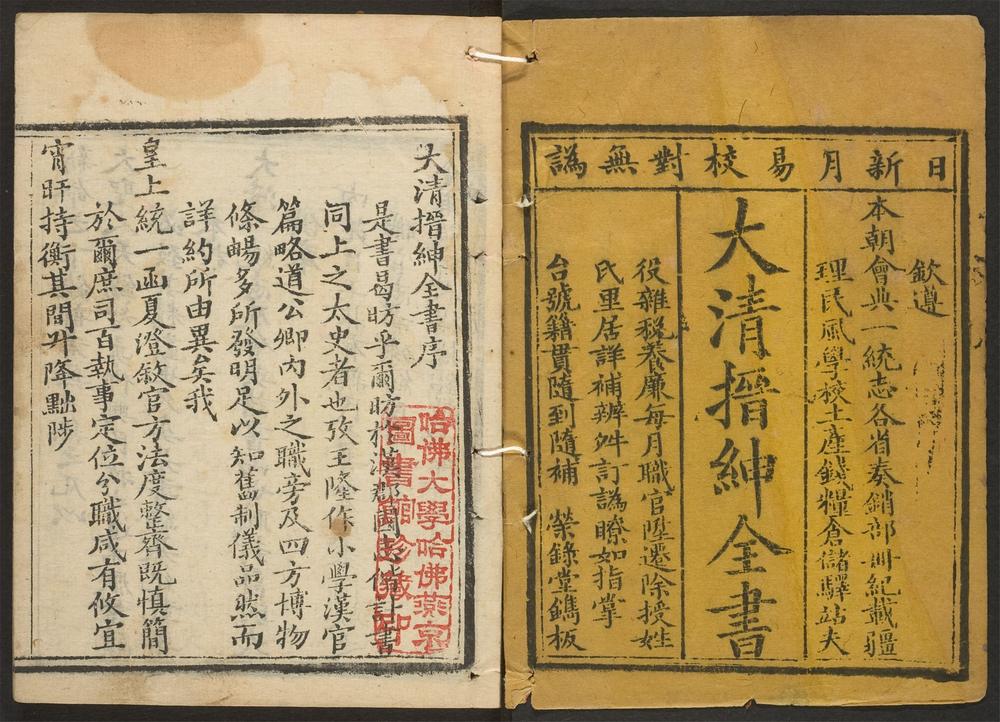 日新月易校對無譌
欽遵
本朝會典一統志各省奏銷部冊紀載疆
理民風學校土產錢糧倉儲驛站夫
大清搢紳全書
役雜稅養廉每月職官陞遷除授姓
氏里居詳補辨舛訂譌瞭如指掌
台號籍貫隨到隨補 榮錄堂鐫板
大清搢紳全書序
是書曷昉乎爾昉於漢郡國志偕計書
同上之太史者也攷王隆作小學漢官
篇略道公卿內外之職旁及四方博物
條暢多所發明足以知舊制儀品然而
詳約所由異矣我
皇上統一函夏澄敘官方法度整齊既慎簡
於爾庶司百執事定位分職咸有攸宜
宵旰持衡其間升降黜陟
哈佛大學哈佛燕京
圖書館珍藏印